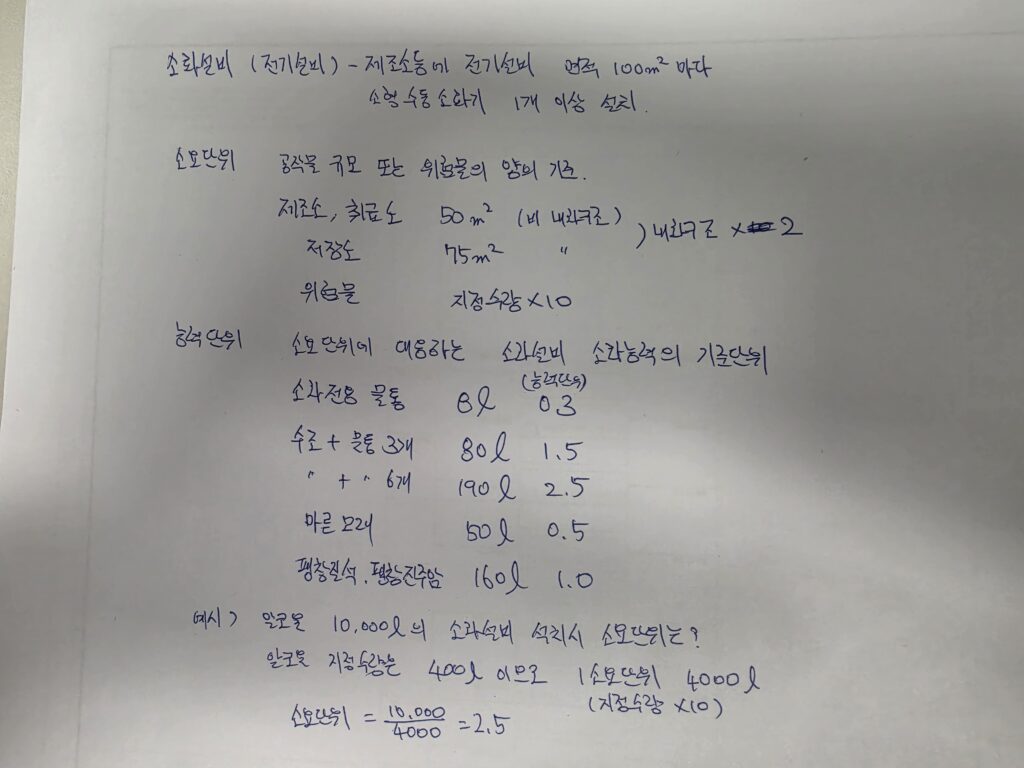 소화설비 (전기설비) - 제조소등에 전기설비 면적 100m² 마다
소형수동소화기 1개 이상 설치.
소요단위 공작물 규모 또는 위험물의 양의 기준.
제조소, 취급소 50m² (비 내화구조)
저장소 75m² " ) 내화구조 × 2
위험물 지정수량×10
능력단위 소요단위에 대응하는 소화설비 소화능력의 기준단위
(능력단위)
소화전용 물통 8l 0.3
수조 + 물통 3개 80l 1.5
" + " 6개 190l 2.5
마른 모래 50l 0.5
팽창질석, 팽창진주암 160l 1.0
예시> 알코올 10,000l의 소화설비 설치시 소요단위는?
알코올 지정수량은 400l 이므로 1소요단위 4000l
(지정수량 ×10)
소요단위 = 10,000/4000 = 2.5